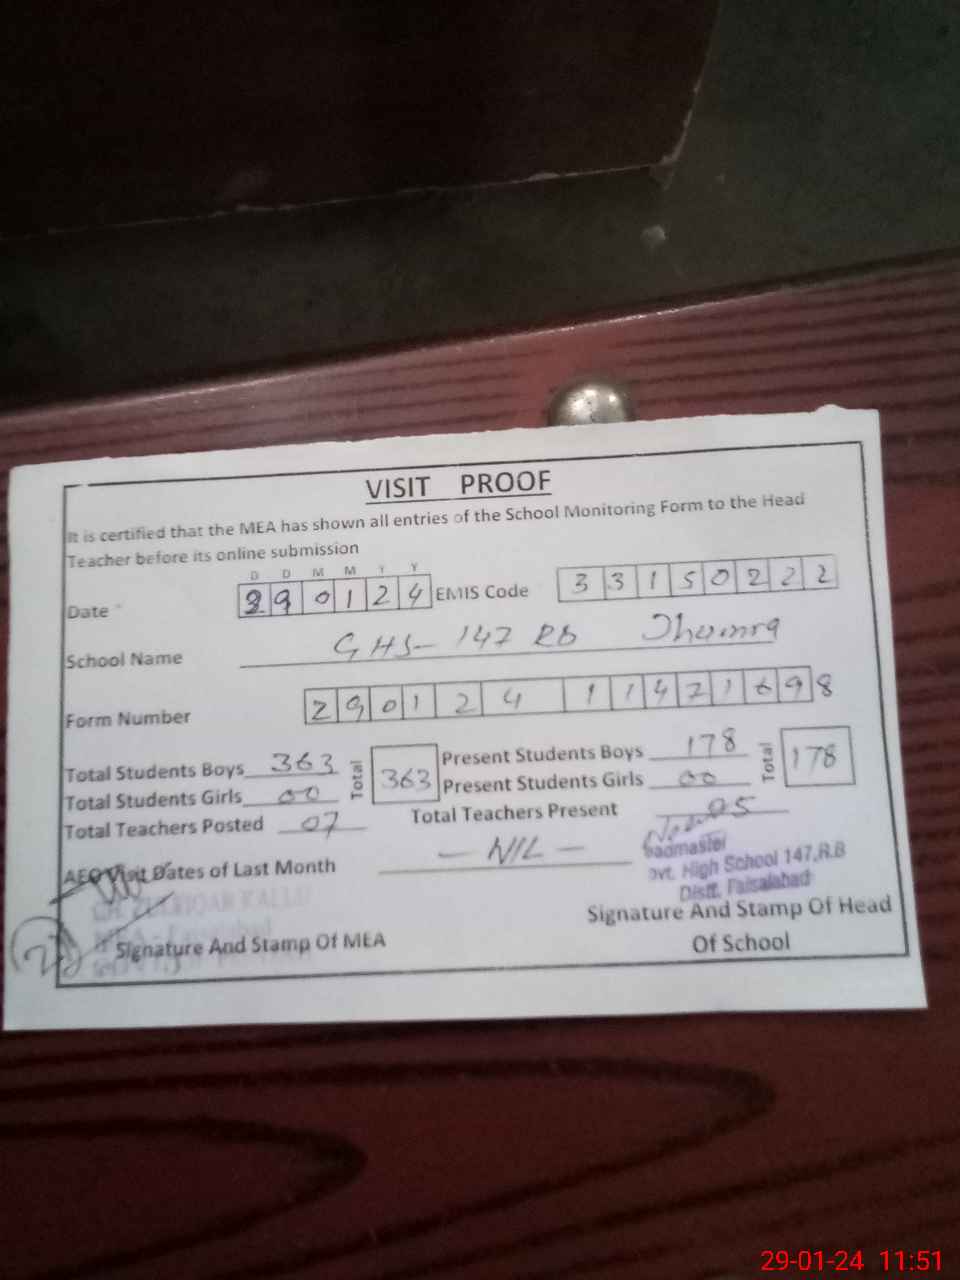 VISIT PROOF
It is certified that the MEA has shown all entries of the School Monitoring Form to the Head
Teacher before its online submission
D D M M Y Y
Date 290124 EMIS Code 33150222
School Name GHS- 147 RB
Form Number 29012411471698
Total Students Boys 363 Total 363 Present Students Boys 178 Total 178
Total Students Girls 00 Present Students Girls 00
Total Teachers Posted 07 Total Teachers Present 05
AEO Visit Dates of Last Month - NIL -
admaster
ovt. High School 147,R.B
Distt. Faisalabad
Signature And Stamp Of MEA
Signature And Stamp Of Head
Of School
29-01-24 11:51